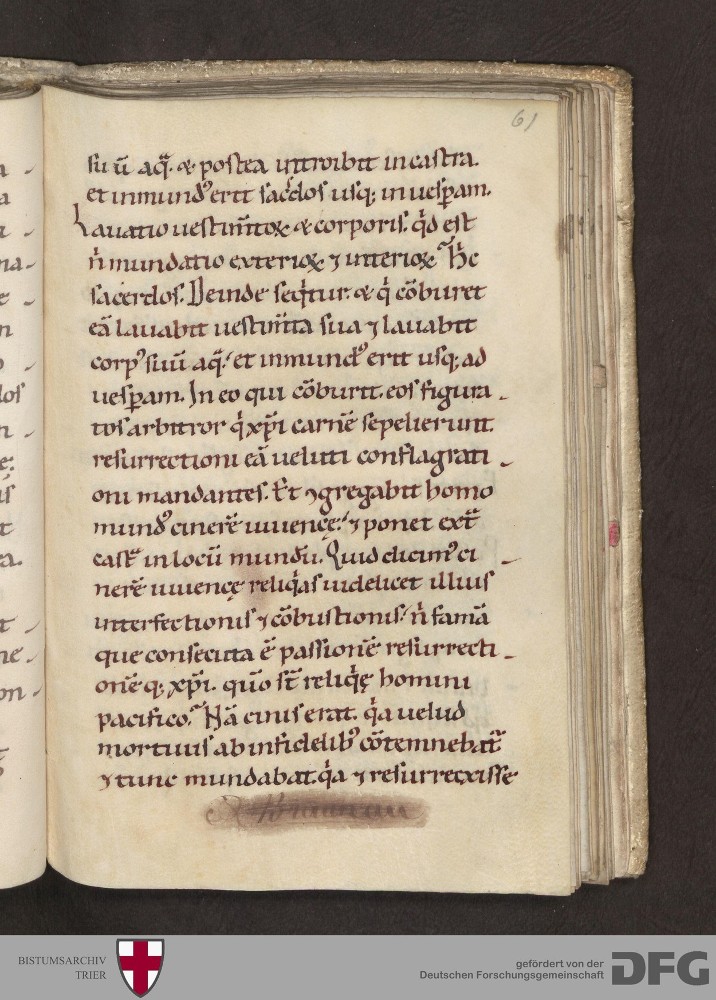 61
suū aq̄. & postea introibit in castra.
et inmundꝰ erit sac̄dos usq; in uesꝑam.
Lauatio uestim̄toꝝ & corporis. qͥd est
n̄ mundatio exterioꝝ ⁊ interioꝝ? H̄c
sacerdos. Deinde seqͥtur. & qͥ cōburet
eā lauabit uestim̄ta sua ⁊ lauabit
corpꝰ suū aq̄. et inmundꝰ erit usq; ad
uesꝑam. In eo qui cōburit. eos figura-
tos arbitror qͥ xp̄i carnē sepelierunt.
resurrectioni eā ueluti conflagrati-
oni mandantes. Et ꝯgregabit homo
mundꝰ cinerē iuuencę. ⁊ ponet ext̄
cast̄ in locū mundū. Quid dicimꝰ ci-
nerē iuuencę reliqͥas uidelicet illius
interfectionis ⁊ cōbustionis? n̄ famā
que consecuta ē passionē resurrecti-
onē q; xp̄i. quō s̄t reliqͥę homini
pacifico? Nā cinis erat. qͣa uelud
mortuus ab infidelibꝰ cōtemnebat᷑
⁊ tunc mundabat. qͣa ⁊ resurrexisse
BISTUMSARCHIV
TRIER
gefördert von der
Deutschen Forschungsgemeinschaft
DFG